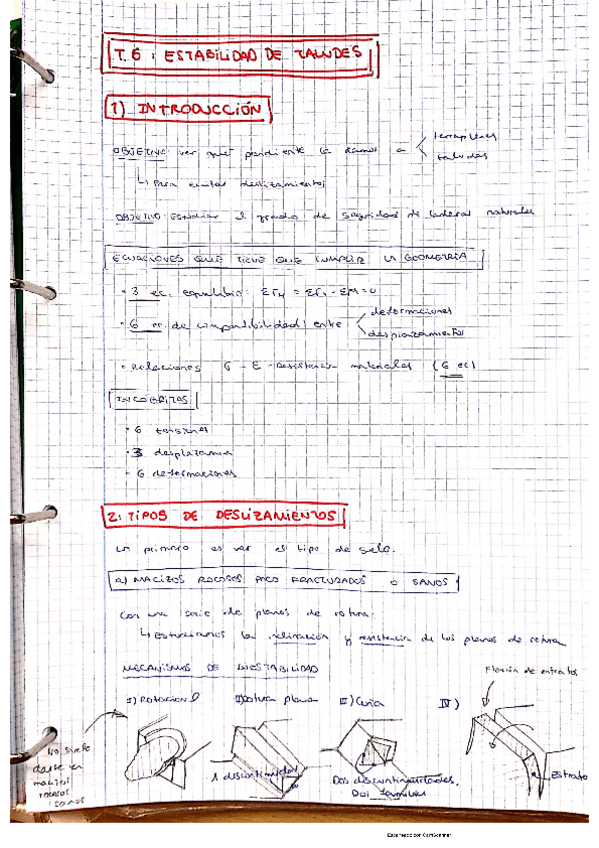 T.6: ESTABILIDAD DE TALUDES
1) INTRODUCCIÓN
OBJETIVO: ver qué pendiente le damos a
terraplenes
taludes
↳ Para evitar deslizamientos
OBJETIVO: Estudiar el grado de seguridad de laderas naturales
ECUACIONES QUE TIENE QUE CUMPLIR LA GEOMETRIA
• 3 ec. equilibrio:
• 6 ec. de compatibilidad entre
deformaciones
desplazamientos
• Relaciones σ - ε - Resistencia materiales (6 ec)
INCÓGNITAS
• 6 tensiones
• 3 desplazamien
• 6 deformaciones
2: TIPOS DE DESLIZAMIENTOS
Lo primero es ver el tipo de suelo.
a) MACIZOS ROCOSOS POCO FRACTURADOS O SANOS
Con una serie de planos de rotura.
↳ Estudiamos la inclinación y resistencia de los planos de rotura
MECANISMOS DE INESTABILIDAD
Flexión de estratos
I) Rotacional
II) Rotura plana
III) Cuña
IV)
No suele
darse en
macizos
rocosos
sanos
1 discontinuidad
Dos discontinuidades,
Dos familias
Estrato
Escaneado con CamScanner